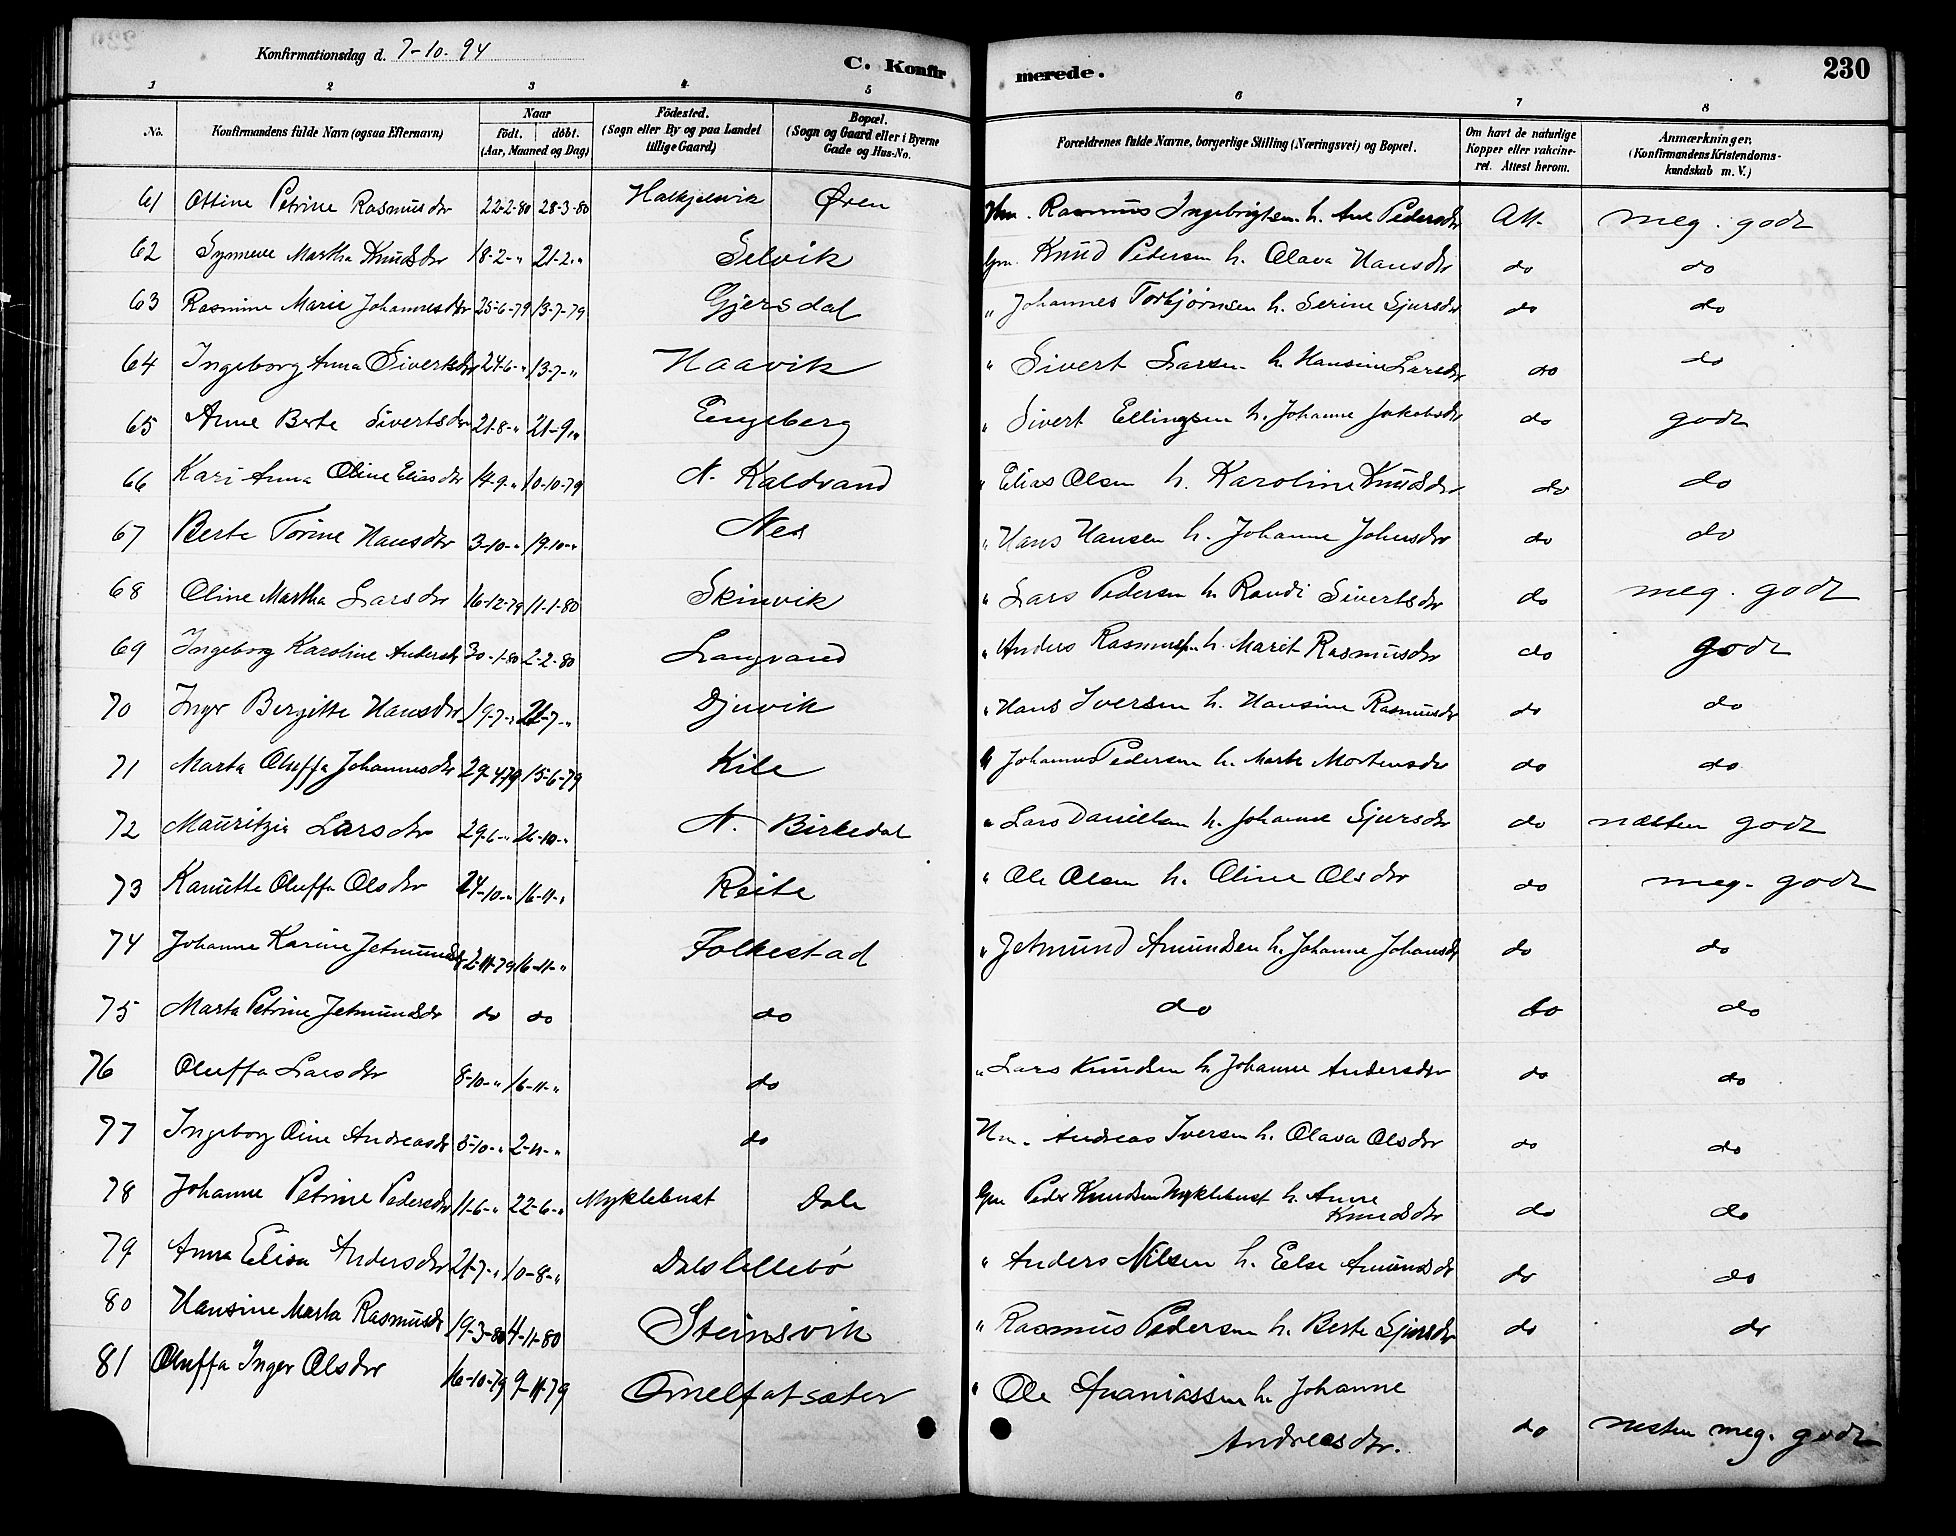 Konfirmationsdag d. 7-10. 94
C. Konfirmerede.
230
1 2 3 4 5 6 7 8
No. Konfirmandens fulde Navn (ogsaa Efternavn) Naar födt. döbt. (Aar, Maaned og Dag) Födested. (Sogn eller By og paa Landet tillige Gaard) Bopæl. (Sogn og Gaard eller i Byerne Gade og Hus-No. Forældrenes fulde Navne, borgerlige Stilling (Næringsvei) og Bopæl. Om havt de naturlige Kopper eller vakcineret. Attest herom. Anmærkninger. (Konfirmandens Kristendomskundskab m. V.)
61 Ottine Petrine Rasmusdtr 22-2-80 28-3-80 Halkjelsvik Øren Hm. Rasmus Ingebrigtsen h. Ane Pedersdtr Att. meg. godt
62 Synneve Martha Knudsdtr 18-2-" 21-2-" Selvik Gm. Knud Pedersen h. Olava Hansdtr do do
63 Rasmine Marie Johannesdtr 25-6-79 13-7-79 Gjersdal " Johannes Torbjørnsen h. Serine Sjursdtr do do
64 Ingeborg Anna Sivertsdtr 24-6-" 13-7-" Haavik " Sivert Larsen h. Hansine Larsdtr do do
65 Anne Berte Sivertsdtr 21-8-" 21-9-" Engeberg " Sivert Ellingsen h. Johanne Jakobsdtr do godt
66 Kari Anna Oline Eliasdtr 14-9-" 10-10-79 N. Kaldvand " Elias Olsen h. Karoline Knudsdtr do do
67 Berte Torine Hansdtr 3-10-" 19-10-" Nes " Hans Hansen h. Johanne Johnsdtr do do
68 Oline Martha Larsdtr 16-12-79 11-1-80 Skinvik " Lars Pedersen h. Randi Sivertsdtr do meg. godt
69 Ingeborg Karoline Andersdtr 30-1-80 2-2-80 Langvand " Anders Rasmusen h. Marit Rasmusdtr do godt
70 Inger Bergitte Hansdtr 19-7-" 21-7-" Djuvik " Hans Iversen h. Hansine Rasmusdtr do do
71 Marta Oluffa Johannesdtr 29-4-79 15-6-79 Kile " Johannes Pedersen h. Marte Mortensdtr do do
72 Mauritzia Larsdtr 29-6-" 26-10-" N. Birkedal " Lars Danielsen h. Johanne Sjursdtr do næsten godt
73 Kanutta Oluffa Olsdtr 24-10-" 16-11-" Reite " Ole Olsen h. Oline Olsdtr do meg. godt
74 Johanne Karine Jetmundsdtr 2-11-79 16-11-" Folkestad " Jetmund Amundsen h. Johanne Johansdtr do do
75 Marta Petrine Jetmundsdtr do do do do do do
76 Oluffa Larsdtr 8-10-" 16-11-" do " Lars Knudsen h. Johanne Andersdtr do do
77 Ingeborg Oine Andreasdtr 8-10-" 2-11-" do Hm. Andreas Iversen h. Olava Olsdtr do do
78 Johanne Petrine Pedersdtr 11-6-" 22-6-" Myklebust Dale Gm Peder Knudsen Myklebust h. Anne
Knudsdtr do do
79 Anna Elisa Andersdtr 21-7-" 10-8-" Dalslillebø " Anders Nilsen h. Else Amundsdtr do do
80 Hansine Marta Rasmusdtr 19-3-80 4-11-80 Steinsvik " Rasmus Pedersen h. Berte Sjursdtr do do
81 Oluffa Inger Olsdtr 16-10-79 9-11-79 Omelfotsæter " Ole Ananiassen h. Johanne
Andreasdtr. do næsten meg. godt